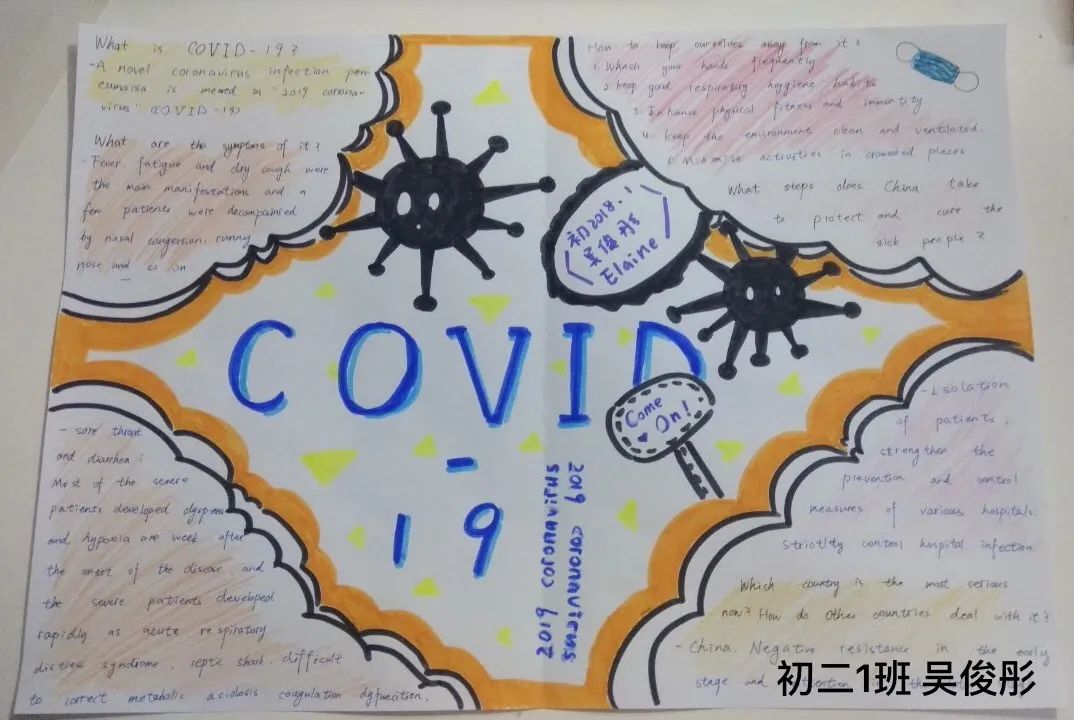 What is COVID-19?
-A novel coronavirus infection pen-
eumonia is memed as "2019 corona-
virus" (COVID-19)
What are the symptoms of it?
- Fever, fatigue and dry cough were
the main manifestations and a
few patients were decompainied
by nasal congestion, runny
nose and so on
How to keep ourselves away from it?
1. Whash your hands frequently
2. keep good respiratory hygiene habits
3. Enhance physical fitness and immunity
4. keep the environment clean and ventilated.
Minimize activities in crowded places
What steps does China take
to protect and cure the
sick people?
初2018.1
吴俊彤
Elaine
COVID
-
19
Come
On!
2019 coronavirus
2019 coronavirus
- sore throat
and diarrhea;
Most of the severe
patients developed dyspnea
and hypoxia one week after
the onset of the disease, and
the severe patients developed
rapidly as acute respiratory
distress syndrome, septic shock, difficult
to correct metabolic acidosis coagulation dyfunction.
-Isolation
of patients,
strengthen the
prevention and control
measures of various hospitals.
Strictlty control hospital infection
Which country is the most serious
now? How do other countries deal with it?
- China. Negative resistance in the early
stage and
初二1班 吴俊彤